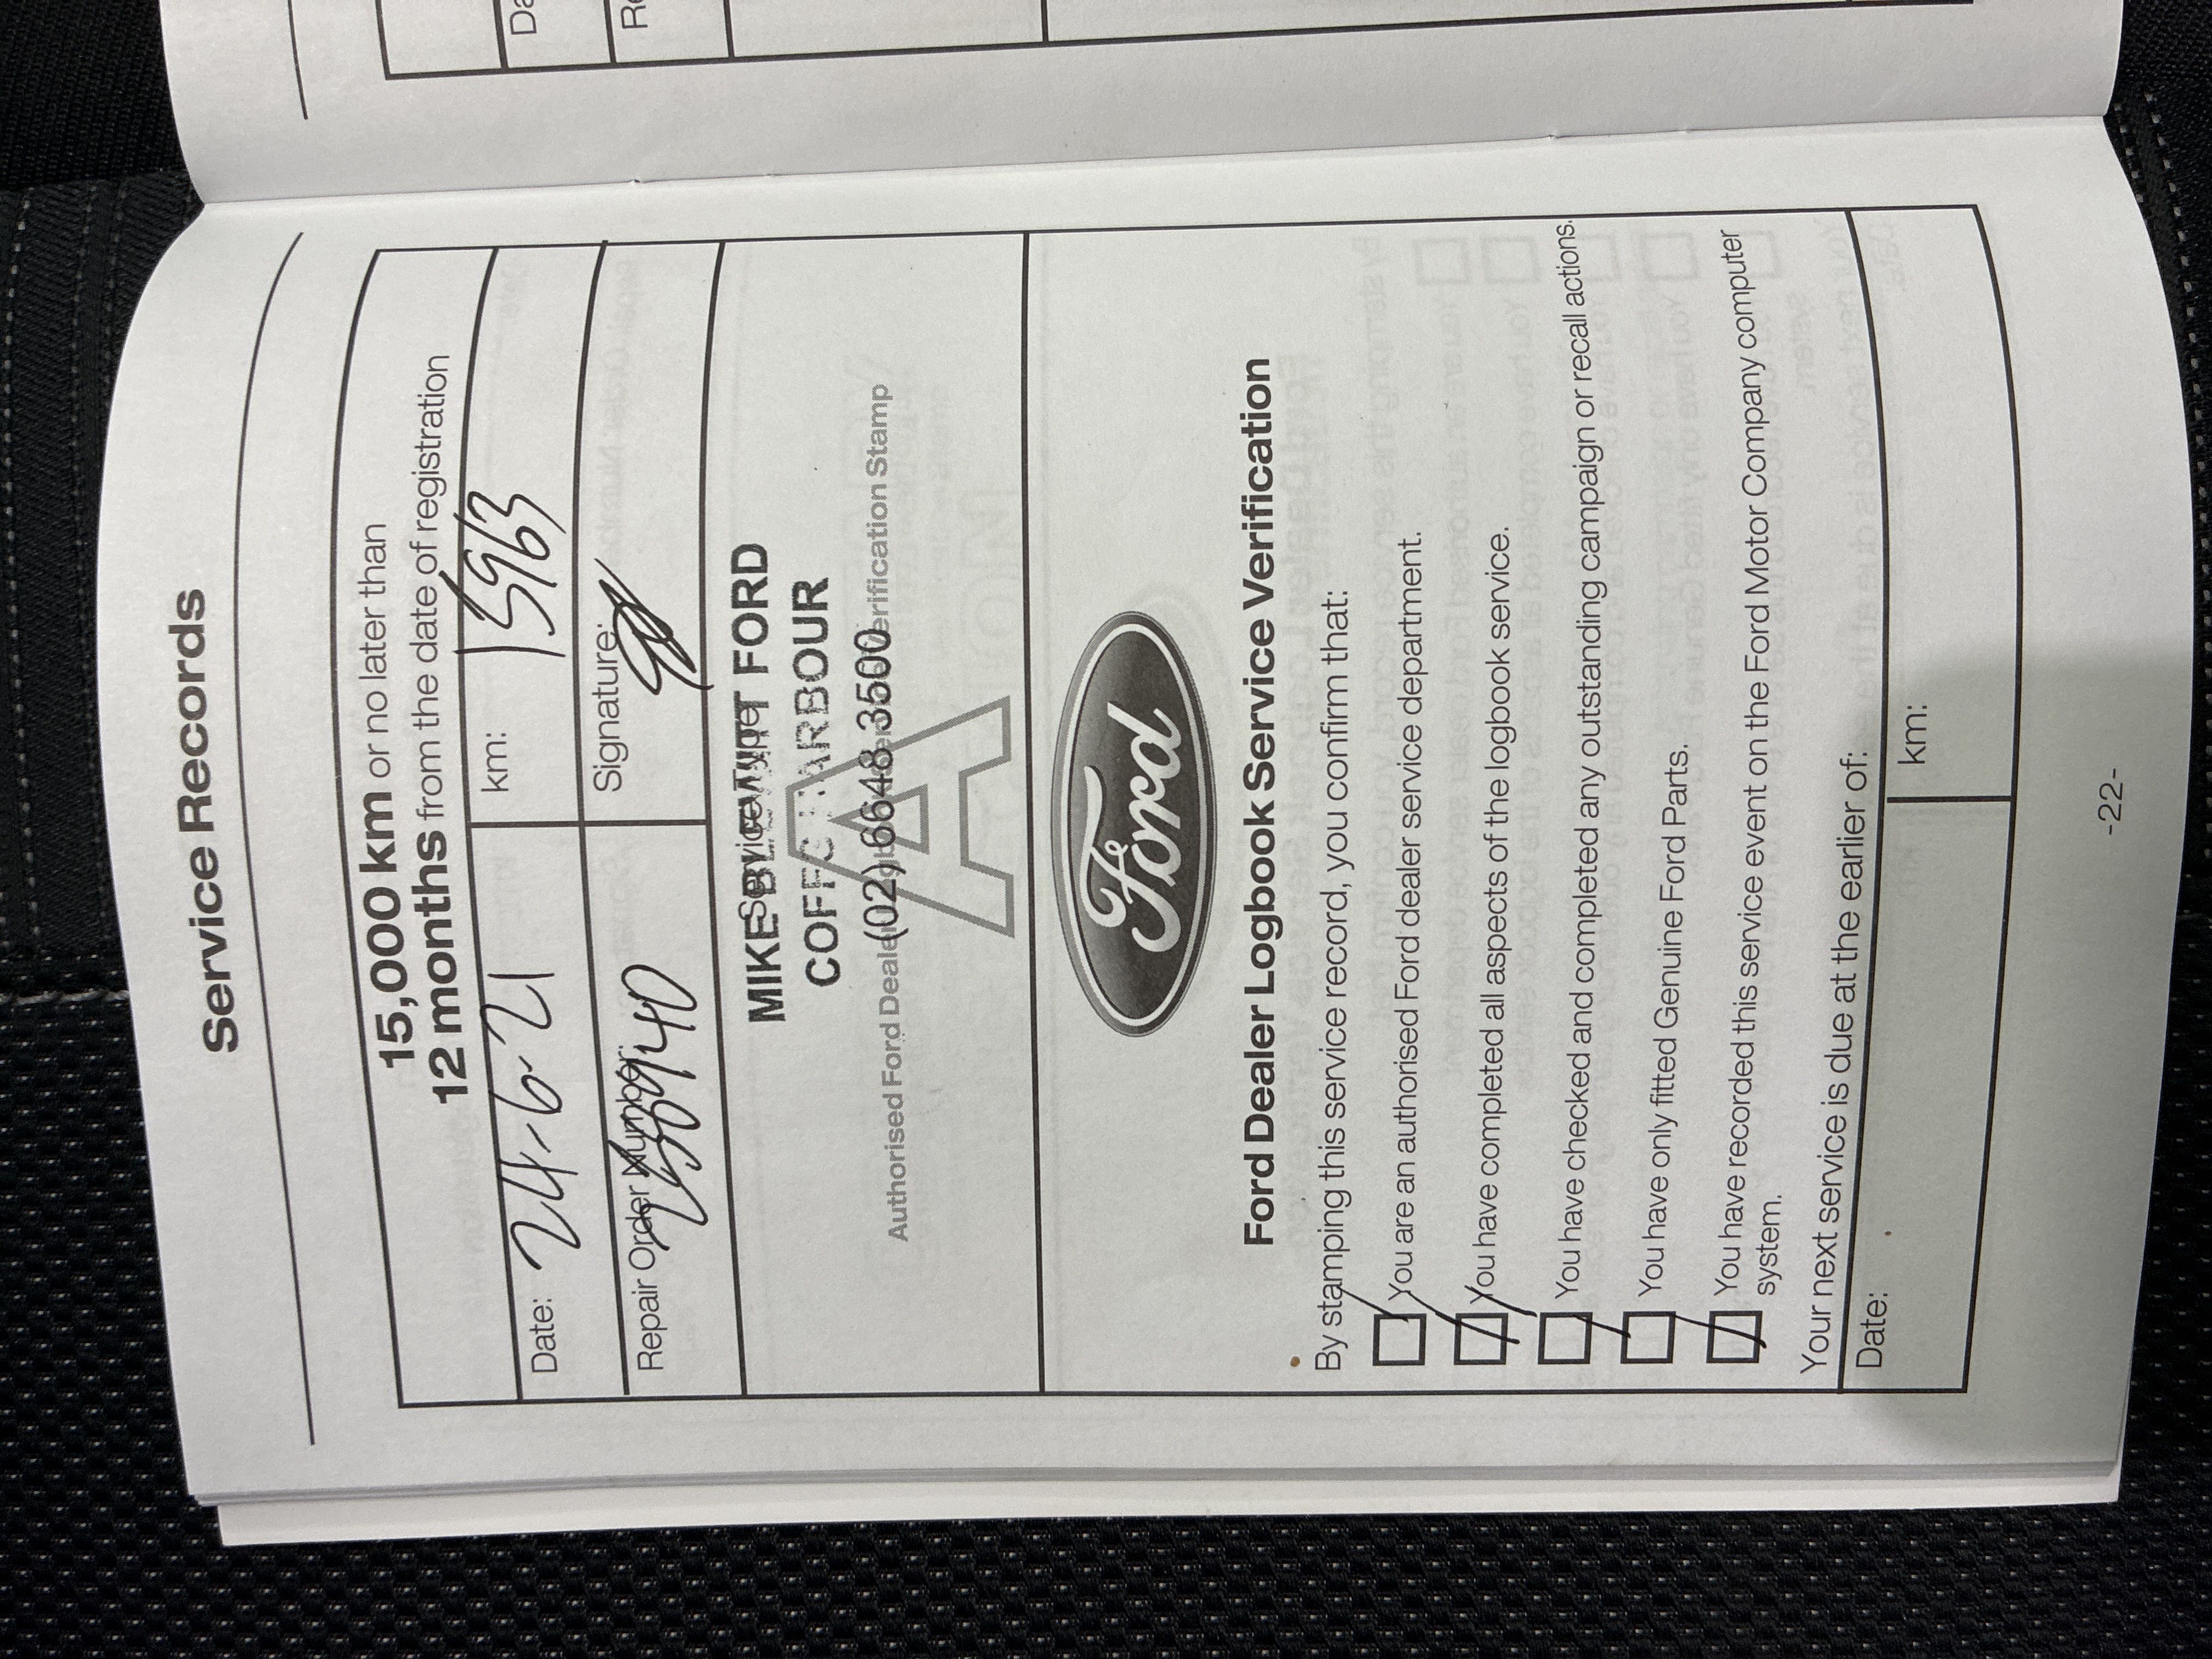 Service Records
15,000 km or no later than
12 months from the date of registration
Date: 24-6-21 km: 15963
Repair Order Number: Signature:
MIKE BLEWITT FORD
COFFS HARBOUR
(02) 6648 3500
Authorised Ford Dealer Verification Stamp
Ford
Ford Dealer Logbook Service Verification
By stamping this service record, you confirm that:
You are an authorised Ford dealer service department.
You have completed all aspects of the logbook service.
You have checked and completed any outstanding campaign or recall actions.
You have only fitted Genuine Ford Parts.
You have recorded this service event on the Ford Motor Company computer
system.
Your next service is due at the earlier of:
Date: km:
-22-